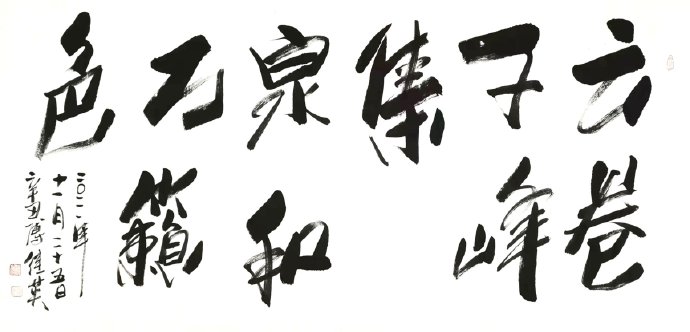 云卷
千峰
集
泉和
万籟
色
二〇二一年
十一月二十五日
辛丑